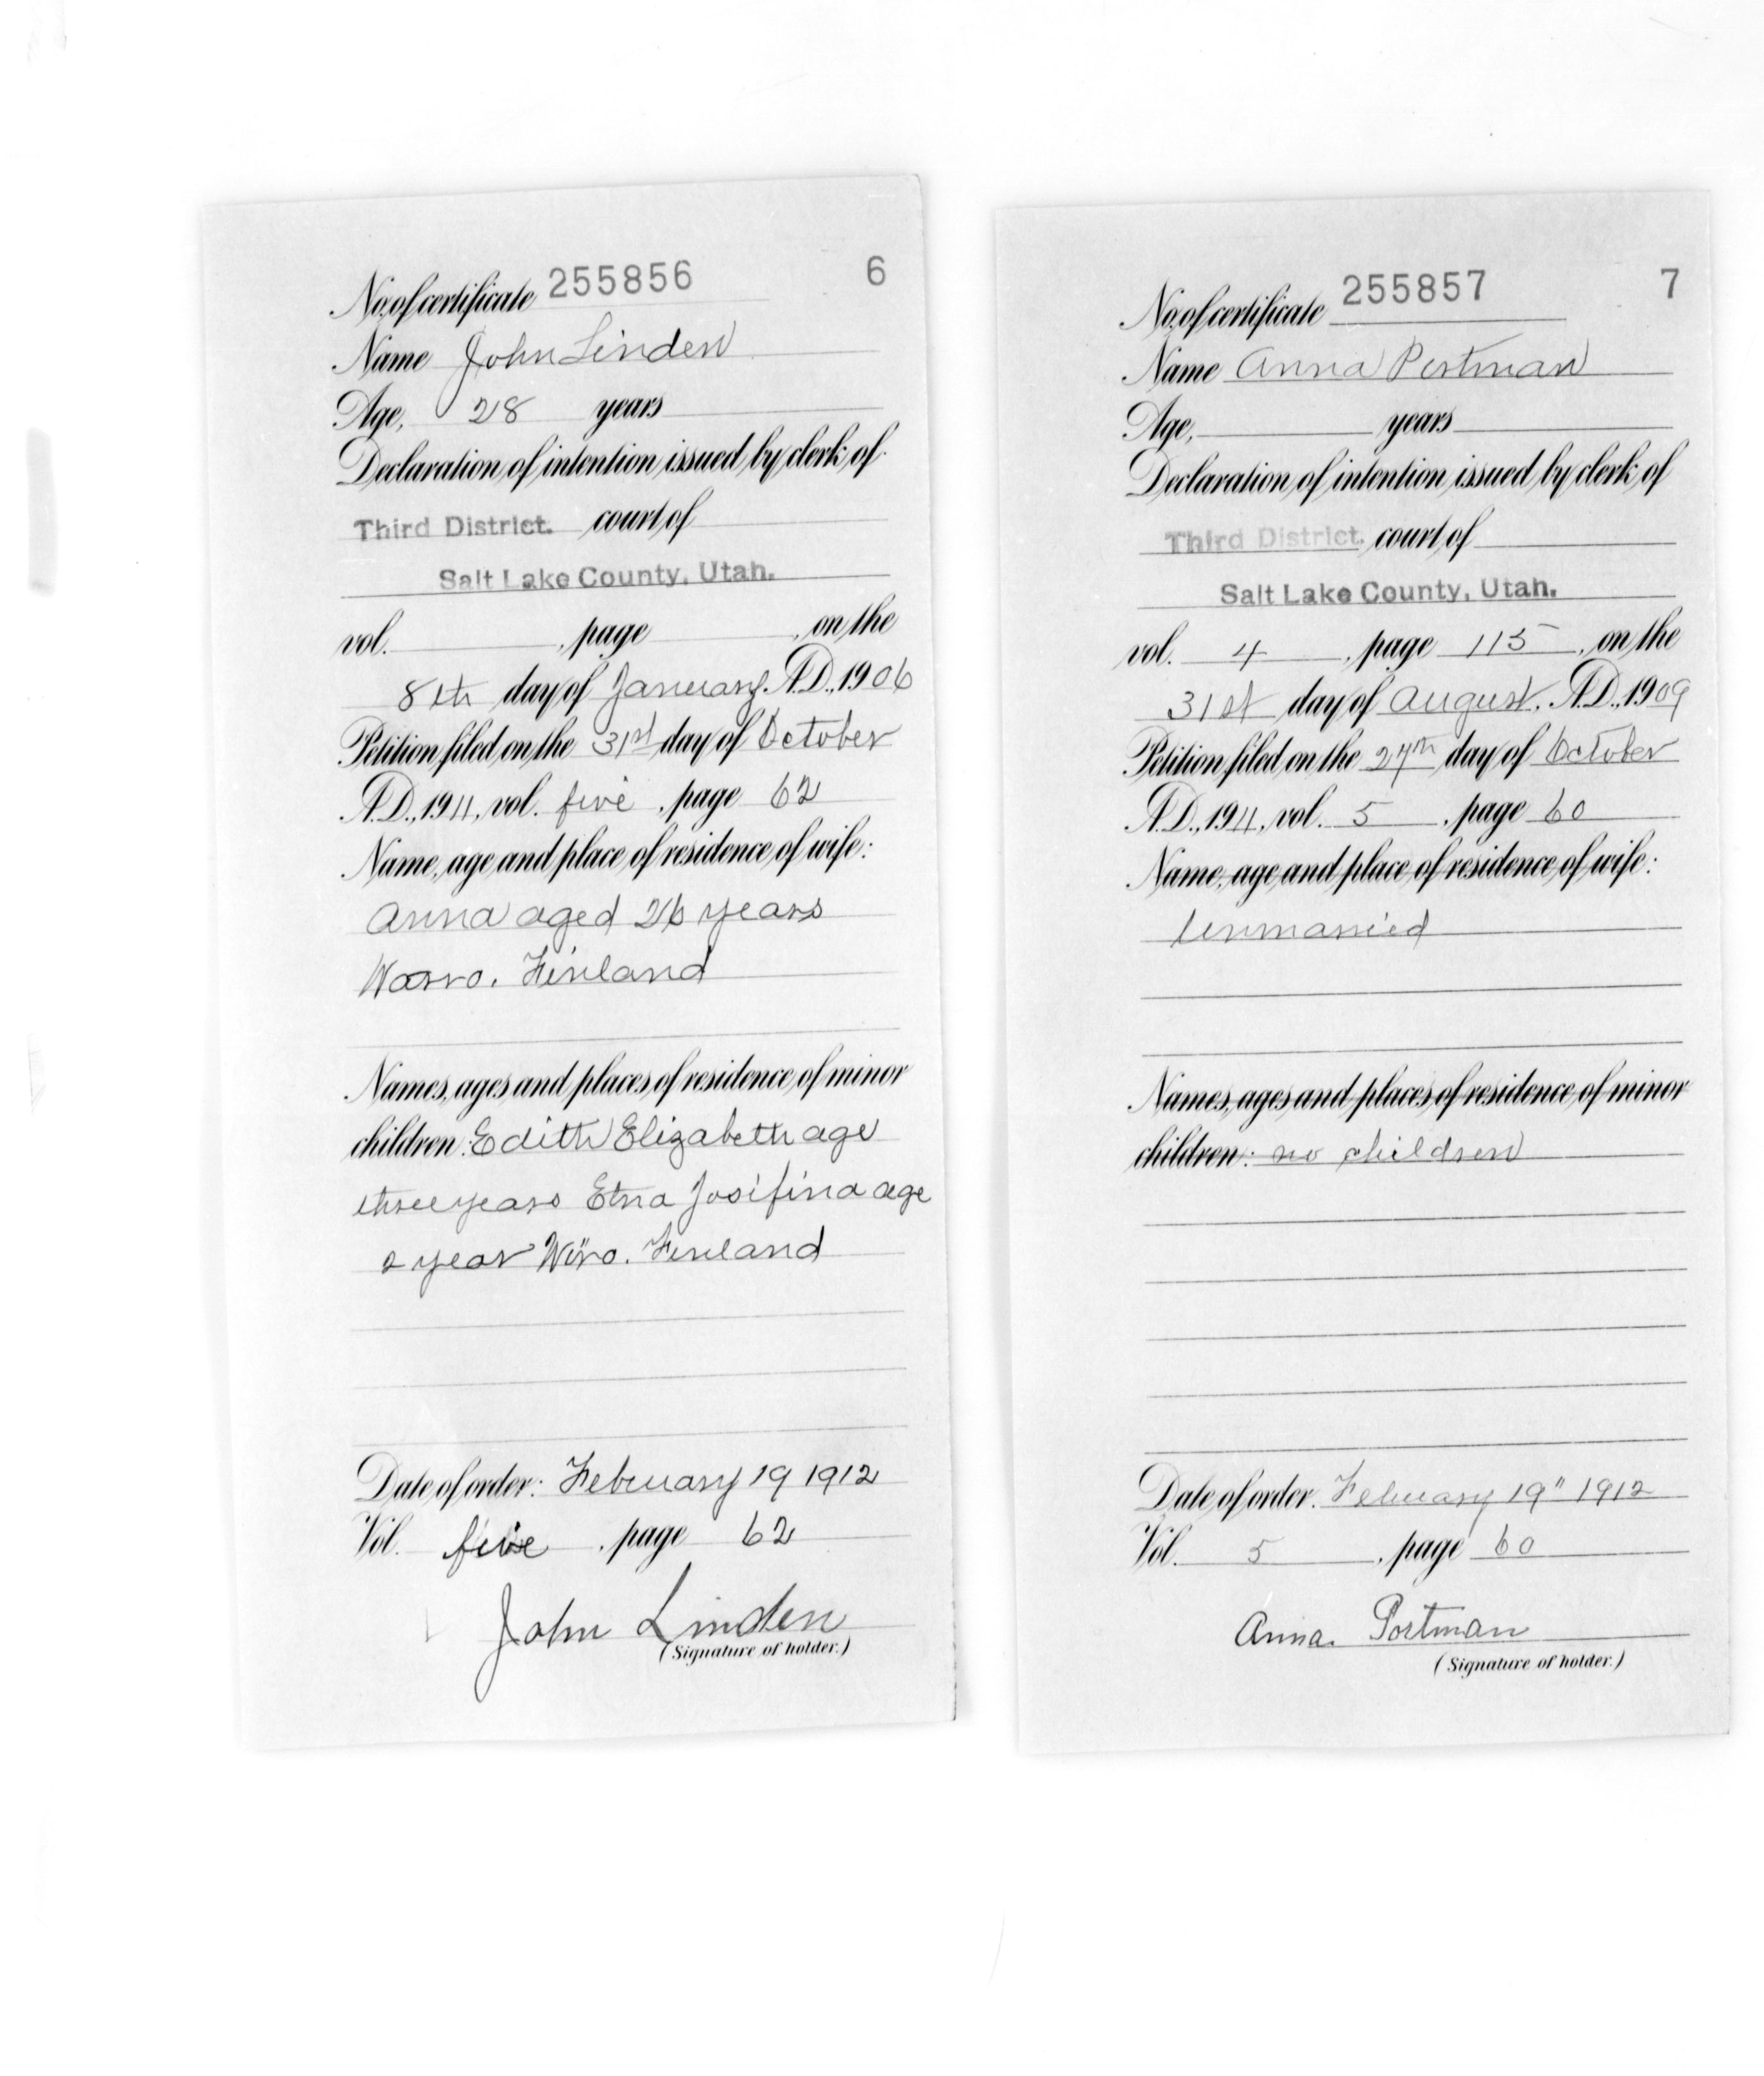 No. of certificate 255856 6
Name John Linden
Age, 28 years
Declaration of intention issued by clerk of
Third District. court of
Salt Lake County, Utah.
vol. , page , on the
8th day of January, A.D., 1906
Petition filed on the 31st day of October
A.D., 1911, vol. five , page 62
Name, age and place of residence of wife:
Anna aged 26 years
Finland
Names, ages and places of residence of minor
children: Edith Elizabeth age
three years Etna Josifina age
year Finland
Date of order: February 19 1912
Vol. five , page 62
John Linden
(Signature of holder.)
No. of certificate 255857 7
Name Anna Portman
Age, years
Declaration of intention issued by clerk of
Third District. court of
Salt Lake County, Utah.
vol. 4 , page 115 , on the
31st day of August, A.D., 1909
Petition filed on the 27th day of October
A.D., 1911, vol. 5 , page 60
Name, age and place of residence of wife:
Unmarried
Names, ages and places of residence of minor
children: no children
Date of order: February 19" 1912
Vol. 5 , page 60
Anna. Portman
(Signature of holder.)